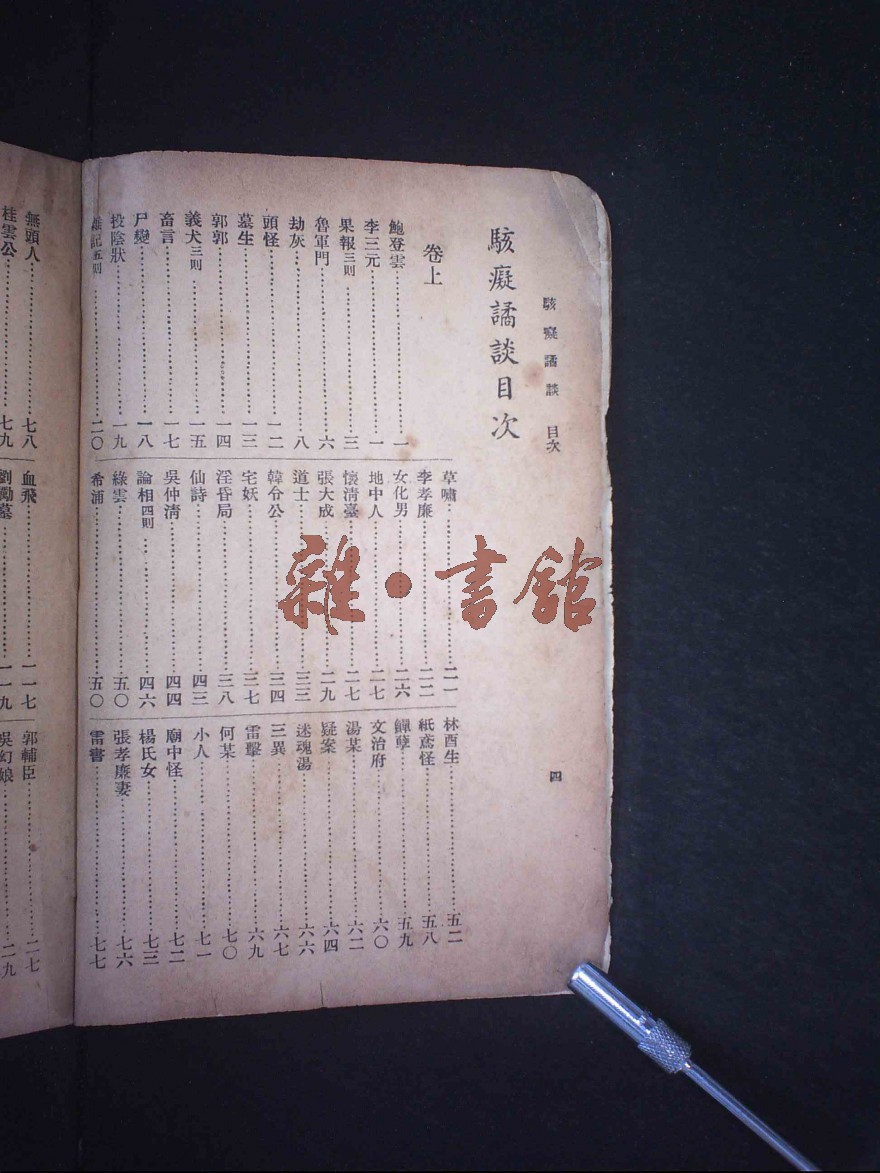 駭癡譎談 目次
四
駭癡譎談目次
卷上
鮑登雲一
李三元一
果報三則三
魯軍門六
劫灰八
頭怪一二
墓生一三
郭郭一四
義犬三則一五
畜言一七
尸變一八
投陰狀一九
雜記五則二〇
草嘯二一
李孝廉二二
女化男二六
地中人二七
懷清臺二七
張大成二九
道士三三
韓令公三四
宅妖三七
淫昏局三八
仙詩四三
吳仲清四四
論相四則四六
綠雲五〇
希浦五〇
林酉生五二
紙鳶怪五八
鱓孽五九
文治府六〇
湯某六二
疑案六四
迷魂湯六六
三異六七
雷擊六九
何某七〇
小人七一
廟中怪七二
楊氏女七三
張孝廉妻七六
雷書七七
無頭人七八
桂雲公七九
血飛一一七
劉勵墓一一九
郭輔臣二一七
吳幻娘二一九
雜·書館